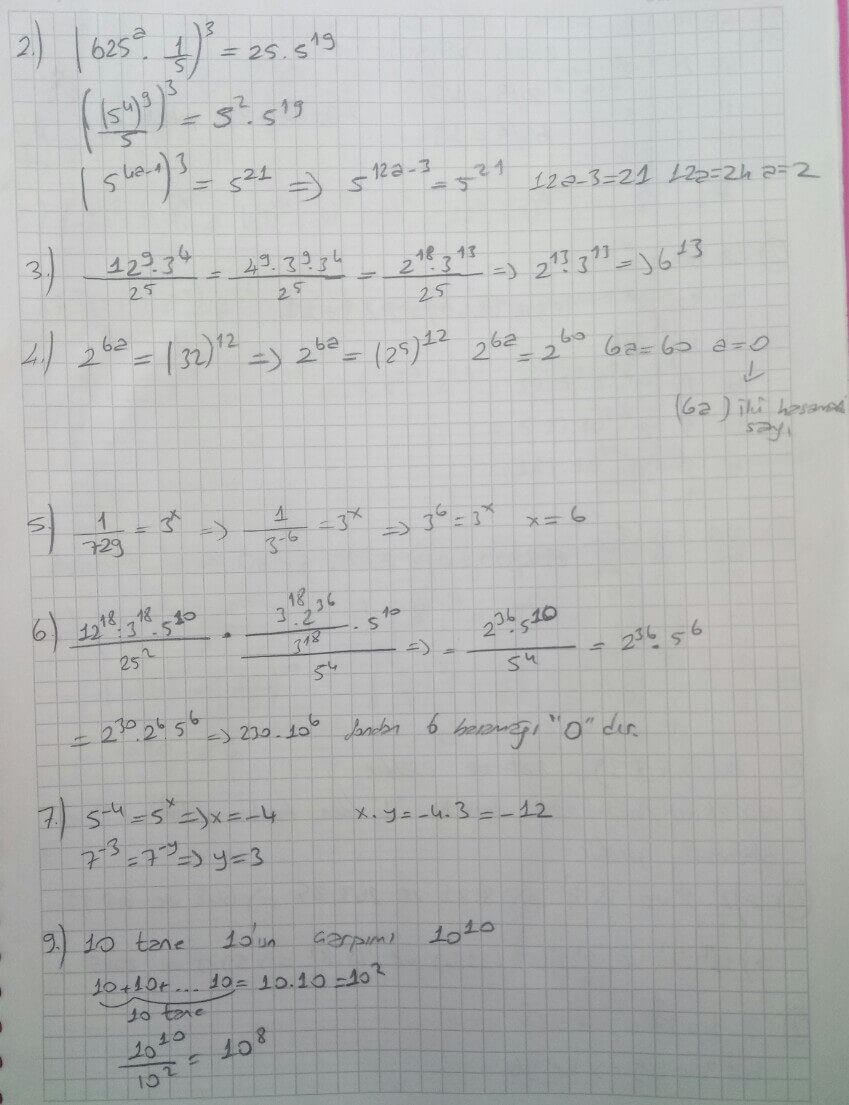 2.) (625ᵃ · 1/5)³ = 25 · 5¹⁹
((5⁴)ᵃ/5)³ = 5² · 5¹⁹
(5⁴ᵃ⁻¹)³ = 5²¹ => 5¹²ᵃ⁻³ = 5²¹ 12a-3=21 12a=24 a=2
3.) 12⁹·3⁴/2⁵ = 4⁹·3⁹·3⁴/2⁵ = 2¹⁸·3¹³/2⁵ => 2¹³·3¹³ => 6¹³
4.) 2⁶ᵃ = (32)¹² => 2⁶ᵃ = (2⁵)¹² 2⁶ᵃ = 2⁶⁰ 6a=60 a=0
↓
(6a) iki basamaklı
sayı
5) 1/729 = 3ˣ => 1/3⁻⁶ = 3ˣ => 3⁶ = 3ˣ x=6
6) 12¹⁸:3¹⁸·5¹⁰/25² = (3¹⁸·2³⁶/3¹⁸ · 5¹⁰)/5⁴ => = 2³⁶·5¹⁰/5⁴ = 2³⁶·5⁶
= 2³⁰·2⁶·5⁶ => 230·10⁶ Sondan 6 basamağı "0" dır.
7.) 5⁻⁴ = 5ˣ => x=-4 x·y=-4·3=-12
7⁻³ = 7⁻ʸ => y=3
9.) 10 tane 10'un çarpımı 10¹⁰
10+10+...10 = 10.10 = 10²
10 tane
10¹⁰/10² = 10⁸